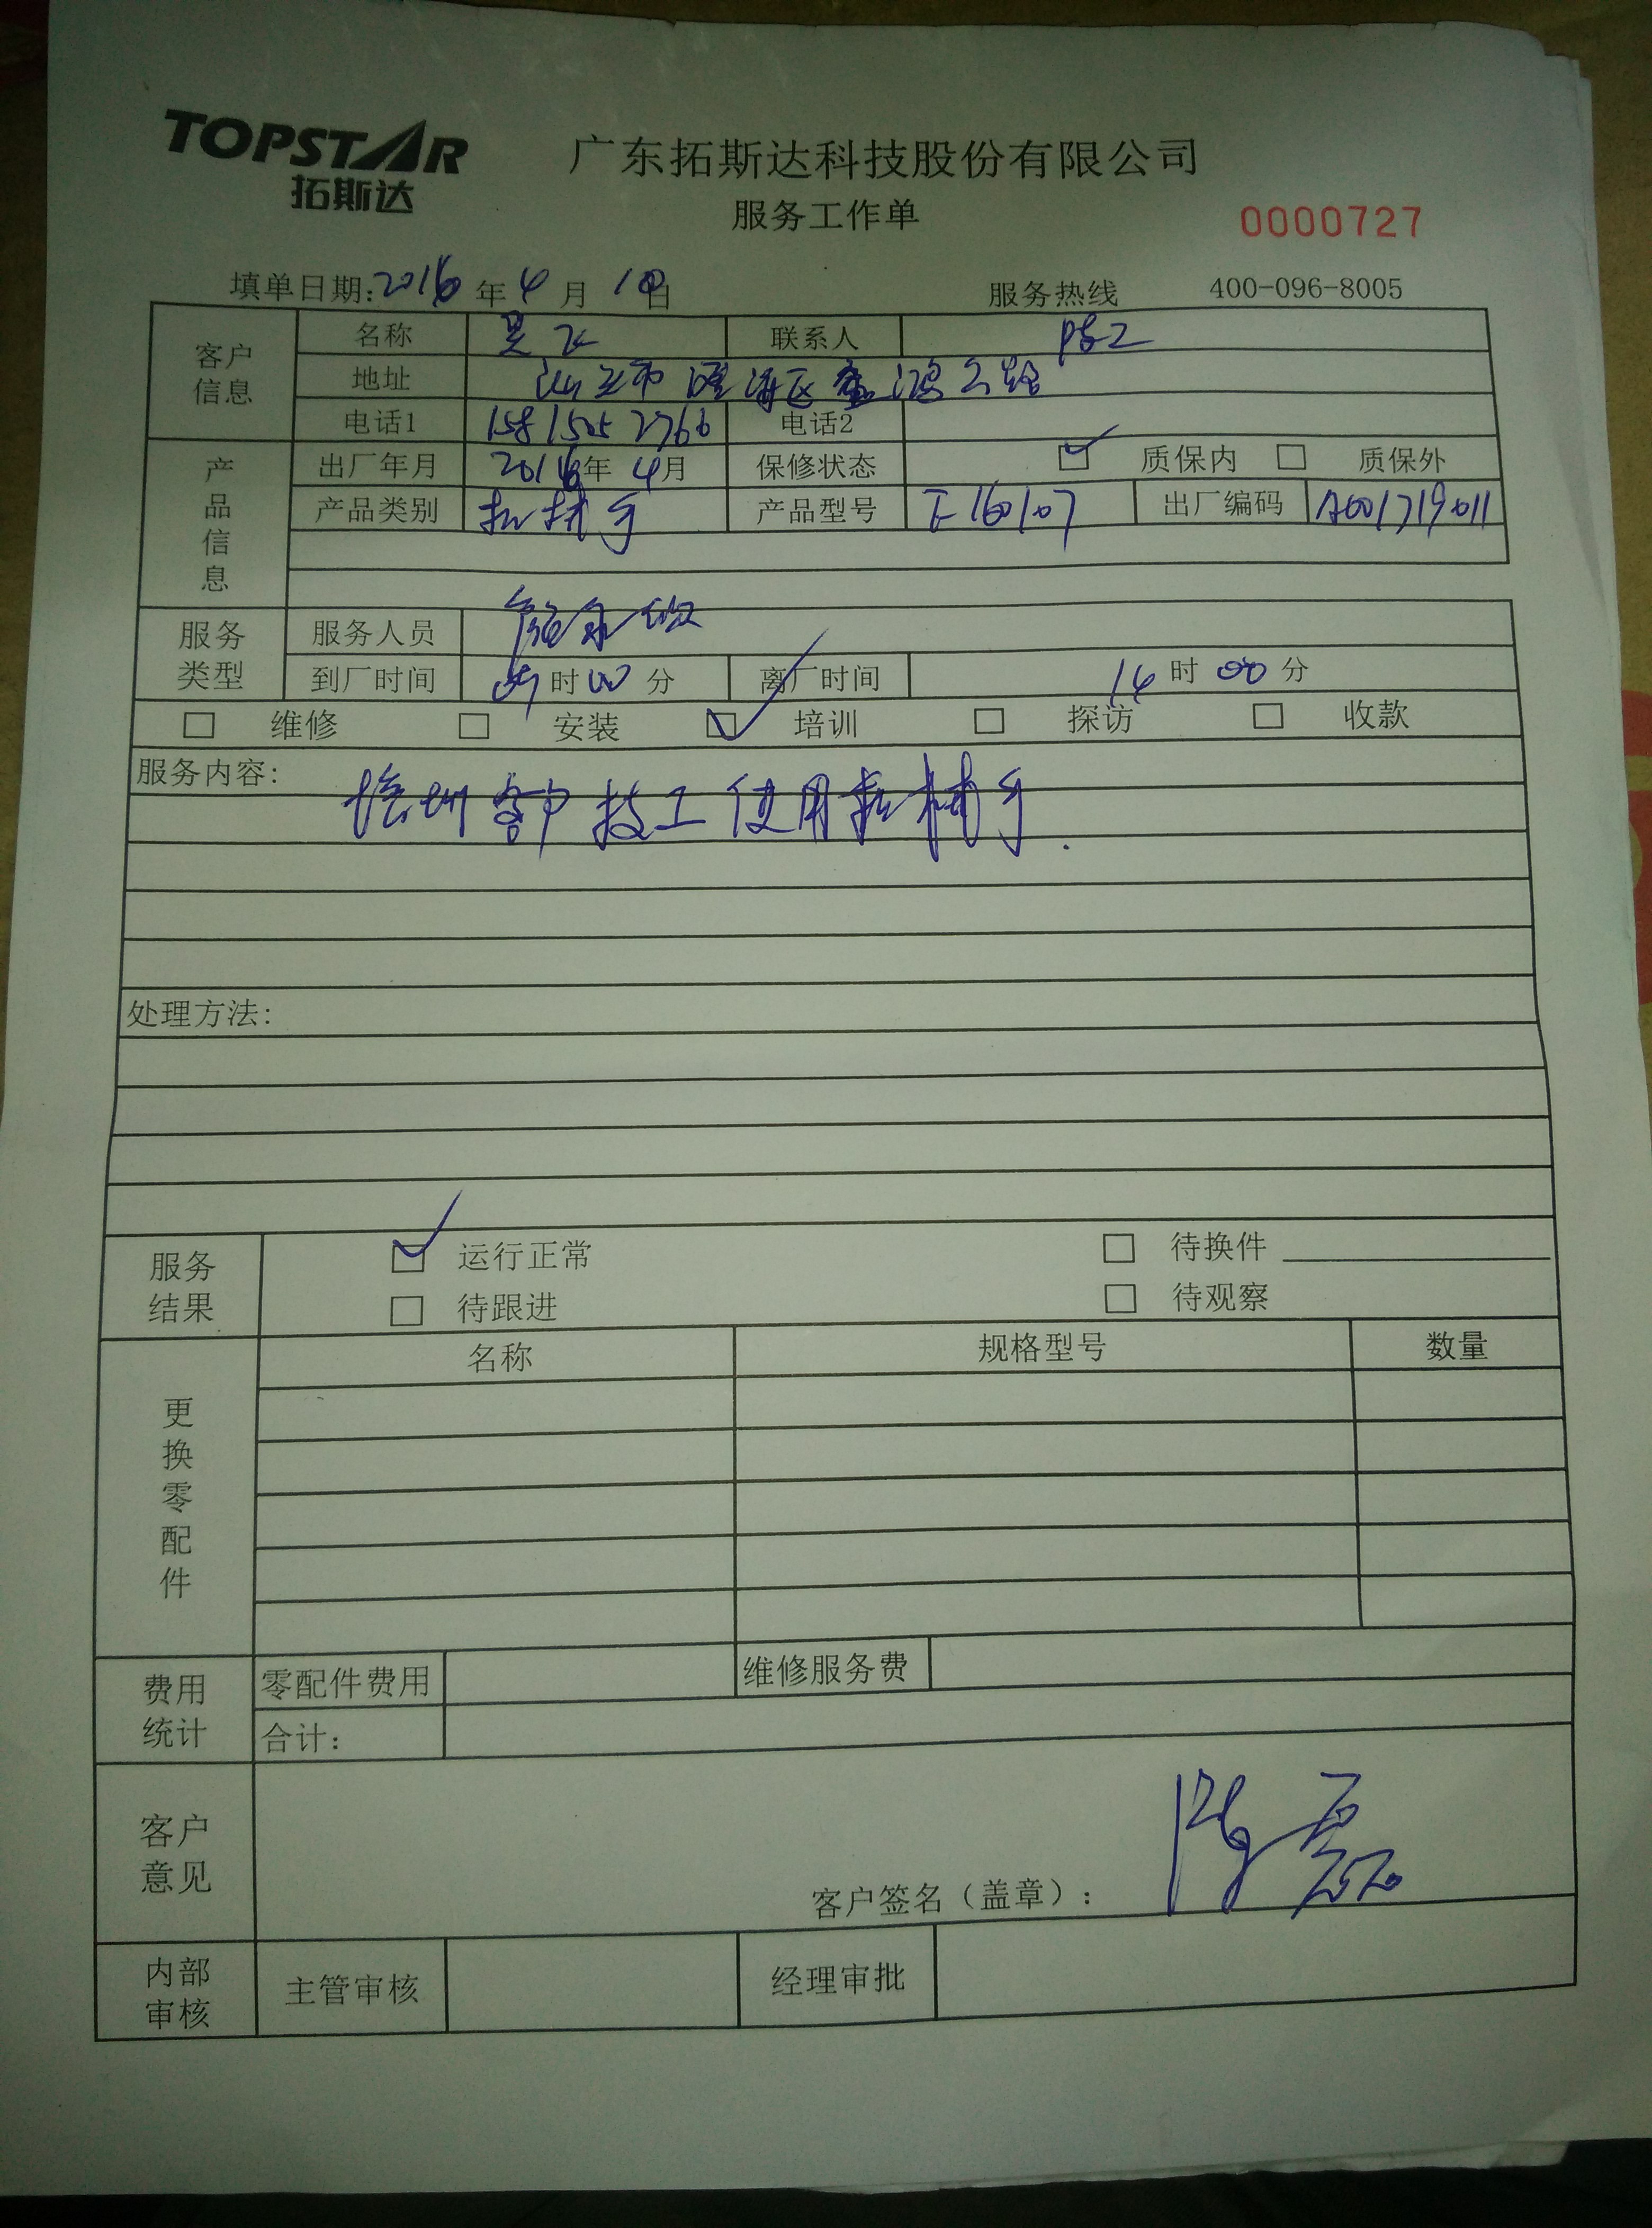 TOPSTAR
拓斯达
广东拓斯达科技股份有限公司
服务工作单
0000727
填单日期:2016年4月10日 服务热线 400-096-8005
客户信息
名称 联系人 陈工
地址 汕头市 区 鸿公路
电话1 15815052766 电话2
产品信息
出厂年月 2016年4月 保修状态 质保内 质保外
产品类别 机械手 产品型号 160107 出厂编码 A001719011
服务类型
服务人员
到厂时间 09时00分 离厂时间 14时00分
维修 安装 培训 探访 收款
服务内容:
培训客户技工使用机械手.
处理方法:
服务结果
运行正常 待换件
待跟进 待观察
更换零配件
名称 规格型号 数量
费用统计
零配件费用 维修服务费
合计:
客户意见
客户签名（盖章）: 陈磊
内部审核
主管审核 经理审批